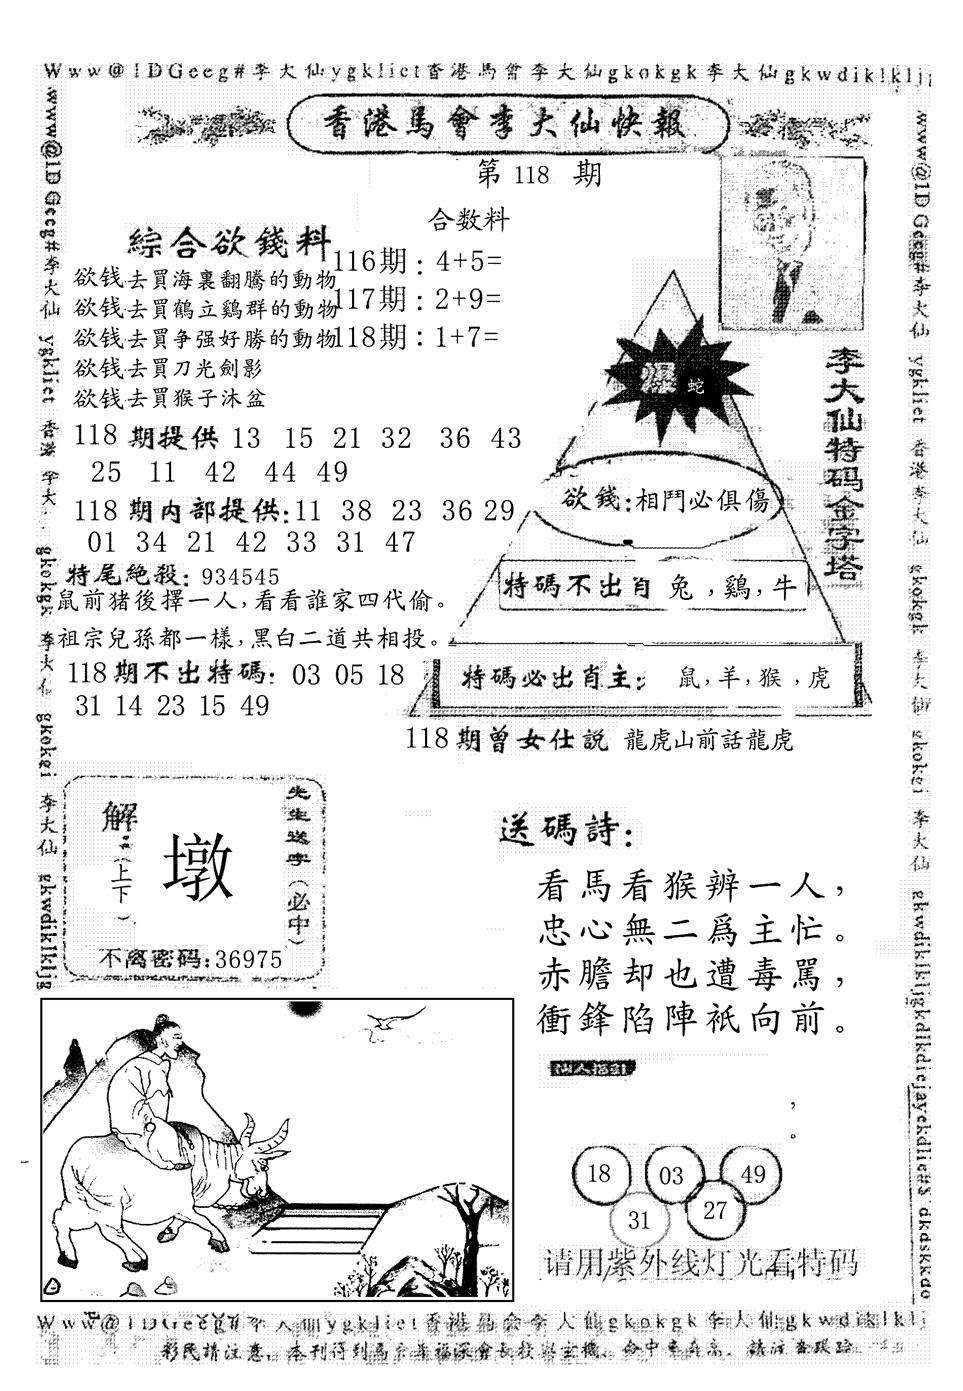 Www@1DGeeg#李大仙ygkliet香港馬會李大仙gkokgk李大仙gkwdiklklj
香港馬會李大仙快報
第 118 期
合数料
綜合欲錢料
116期：4+5=
117期：2+9=
118期：1+7=
欲钱去買海裏翻騰的動物
欲钱去買鶴立鷄群的動物
欲钱去買争强好勝的動物
欲钱去買刀光劍影
欲钱去買猴子沐盆
118 期提供 13 15 21 32 36 43
25 11 42 44 49
118 期内部提供:11 38 23 36 29
01 34 21 42 33 31 47
特尾絶殺: 934545
鼠前猪後擇一人,看看誰家四代偷。
祖宗兒孫都一樣,黑白二道共相投。
118期不出特碼: 03 05 18
31 14 23 15 49
爆 蛇
欲錢:相鬥必俱傷
特碼不出肖 兔,鷄,牛
特碼必出肖主: 鼠,羊,猴,虎
李大仙特码金字塔
118期曾女仕説 龍虎山前話龍虎
解
(上下)
墩
先生送字(必中)
不离密码:36975
送碼詩:
看馬看猴辨一人,
忠心無二爲主忙。
赤膽却也遭毒駡,
衝鋒陷陣祇向前。
仙人指引
,
。
18 03 49
31 27
请用紫外线灯光看特码
Www@1DGeeg#李大仙ygkliet香港馬会李大仙gkokgk李大仙gkwdiklklj